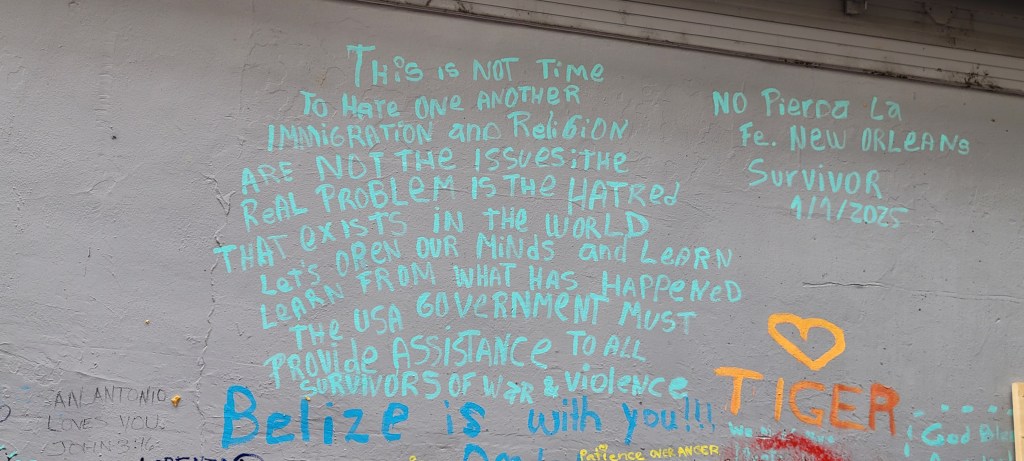 THis is NOT Time
TO HATE ONE ANOTHER
IMMIGRATION and ReliGION
ARE NOT THE ISSUES:THE
ReAL PROBLEM IS THE HATRed
THAT eXiSTS IN THE WORLD
LeT'S OPEN OUR MiNdS and LEARN
LEARN FROM WHAT HAS HAPPENED
THE USA GOVERNMENT MUST
PROVIde ASSISTANCe TO ALL
SURVIVORS OF WAR & Violence
NO PierDa La
Fe. NEW ORLEANS
SurviVOR
1/1/2025
TIGER
AN ANTONIO
LOVES YOU.
JOHN 3:16
Belize is with you!!!
We
God
Patience OVER ANGER